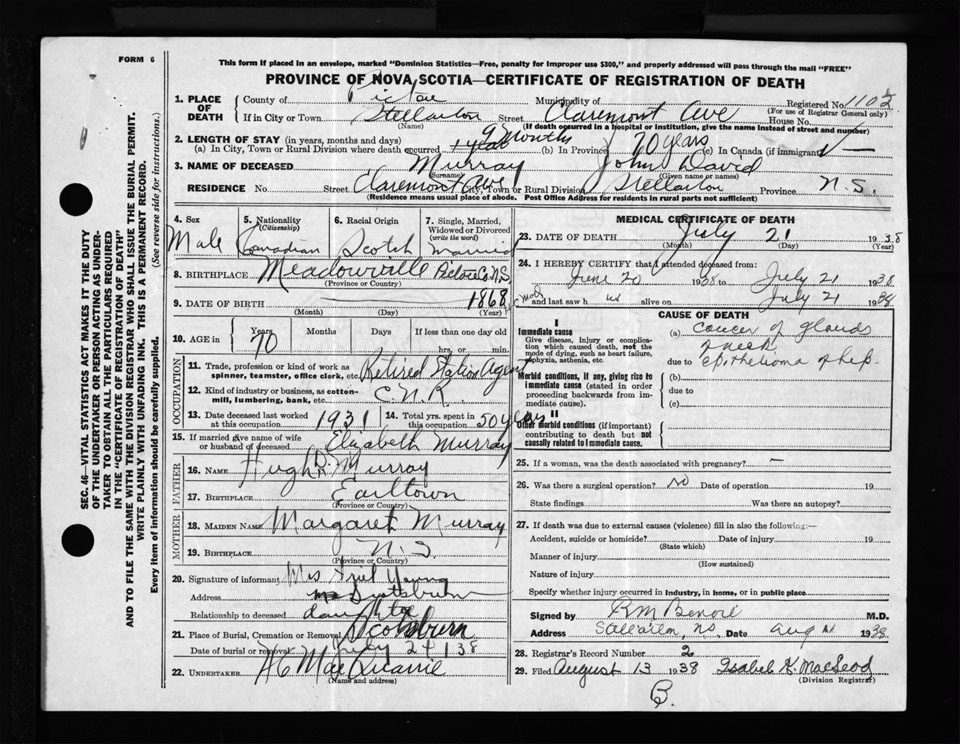 FORM 6
This form if placed in an envelope, marked "Dominion Statistics—Free, penalty for improper use $300," and properly addressed will pass through the mail "FREE"
PROVINCE OF NOVA SCOTIA—CERTIFICATE OF REGISTRATION OF DEATH
SEC. 46—VITAL STATISTICS ACT MAKES IT THE DUTY
OF THE UNDERTAKER OR PERSON ACTING AS UNDER-
TAKER TO OBTAIN ALL THE PARTICULARS REQUIRED
IN THE "CERTIFICATE OF REGISTRATION OF DEATH"
AND TO FILE THE SAME WITH THE DIVISION REGISTRAR WHO SHALL ISSUE THE BURIAL PERMIT.
WRITE PLAINLY WITH UNFADING INK. THIS IS A PERMANENT RECORD.
Every item of information should be carefully supplied. (See reverse side for instructions.)
1. PLACE OF DEATH County of Pictou Municipality of Registered No. 1102
(For use of Registrar General only)
If in City or Town Stellarton Street Claremont Ave House No.
(Name) (If death occurred in a hospital or institution, give the name instead of street and number)
2. LENGTH OF STAY (in years, months and days)
(a) In City, Town or Rural Division where death occurred 1 year 9 months (b) In Province 70 years (c) In Canada (if immigrant)
3. NAME OF DECEASED Murray John David
(Surname) (Given name or names)
RESIDENCE No. Street Claremont Ave City, Town or Rural Division Stellarton Province N.S.
(Residence means usual place of abode. Post Office Address for residents in rural parts not sufficient)
4. Sex Male
5. Nationality (Citizenship) Canadian
6. Racial Origin Scotch
7. Single, Married, Widowed or Divorced (write the word) Married
8. BIRTHPLACE Meadowville Pictou Co N.S.
(Province or Country)
9. DATE OF BIRTH 1868
(Month) (Day) (Year)
10. AGE in Years 70 Months Days If less than one day hrs. or min.
OCCUPATION
11. Trade, profession or kind of work as spinner, teamster, office clerk, etc. Retired Station Agent
12. Kind of industry or business, as cotton-mill, lumbering, bank, etc. C.N.R.
13. Date deceased last worked at this occupation 1931
14. Total yrs. spent in this occupation 50 years
15. If married give name of wife or husband of deceased Elizabeth Murray
FATHER
16. NAME Hugh D. Murray
17. BIRTHPLACE Earltown
(Province or Country)
MOTHER
18. MAIDEN NAME Margaret Murray
19. BIRTHPLACE N.S.
(Province or Country)
20. Signature of informant Mrs Young
Address Scotsburn
Relationship to deceased daughter
21. Place of Burial, Cremation or Removal Scotsburn
Date of burial or removal July 24 1938
22. UNDERTAKER
(Name and address)
MEDICAL CERTIFICATE OF DEATH
23. DATE OF DEATH July 21 1938
(Month) (Day) (Year)
24. I HEREBY CERTIFY that I attended deceased from:
June 20 1938 to July 21 1938
and last saw h alive on July 21 1938
CAUSE OF DEATH
I
Immediate cause
Give disease, injury or complication which caused death, not the mode of dying, such as heart failure, asphyxia, asthenia, etc.
(a) cancer of glands
neck
due to epithelioma of lip
Morbid conditions, if any, giving rise to immediate cause (stated in order proceeding backwards from immediate cause).
(b)
due to
(c)
II
Other morbid conditions (if important) contributing to death but not causally related to immediate cause.
25. If a woman, was the death associated with pregnancy? —
26. Was there a surgical operation? no Date of operation 19
State findings Was there an autopsy?
27. If death was due to external causes (violence) fill in also the following:—
Accident, suicide or homicide? Date of injury 19
(State which)
Manner of injury
(How sustained)
Nature of injury
Specify whether injury occurred in industry, in home, or in public place
Signed by M.D.
Address Date Aug 1938
28. Registrar's Record Number 2
29. Filed August 13 1938 Isabel K. MacLeod
(Division Registrar)
B.